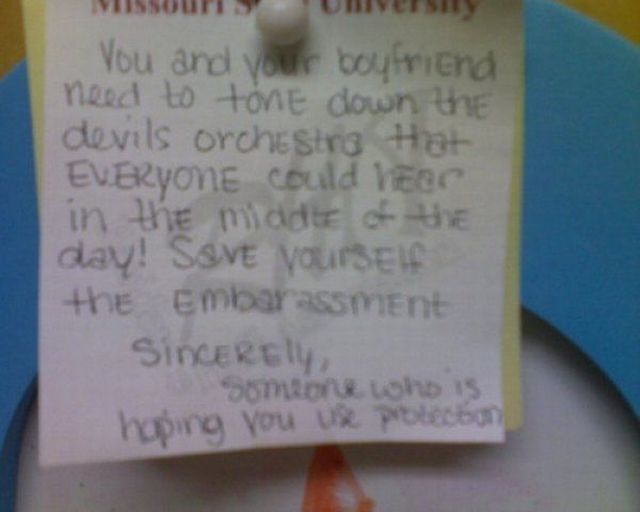 Missouri S University
You and your boyfriend
need to tone down the
devils orchestra that
EVERYONE could hear
in the middle of the
day! Save yourself
the Embarassment
Sincerely,
Someone who is
hoping you use protection